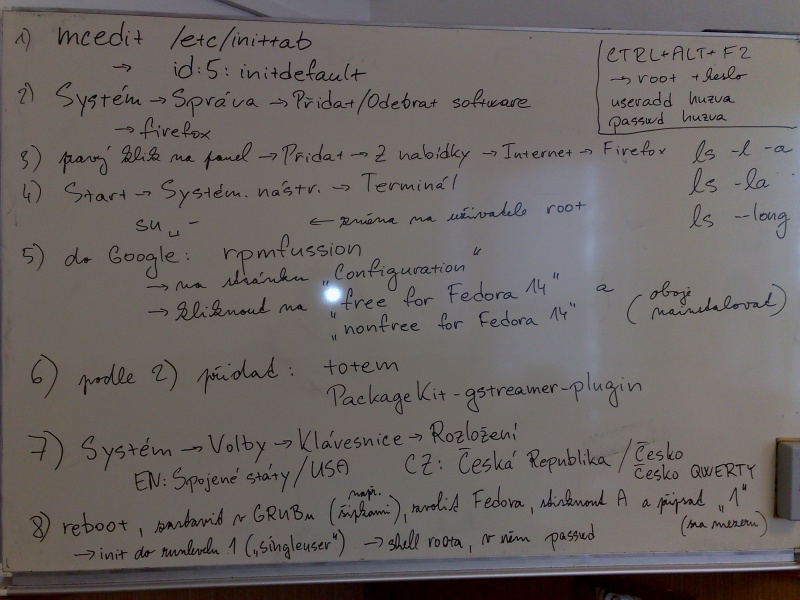 1) mcedit /etc/inittab
→ id:5:initdefault
2) Systém → Správa → Přidat/Odebrat software
→ firefox
3) pravý klik na panel → Přidat → Z nabídky → Internet → Firefox
4) Start → Systém. nástr. → Terminál
su␣-    ← změna na uživatele root
5) do Google: rpmfussion
→ na stránku „Configuration“
→ kliknout na „free for Fedora 14“ a
„nonfree for Fedora 14“ (oboje nainstalovat)
6) podle 2) přidat: totem
PackageKit-gstreamer-plugin
7) Systém → Volby → Klávesnice → Rozložení
EN: Spojené státy/USA    CZ: Česká Republika/Česko
Česko QWERTY
8) reboot, zastavit v GRUBu (např. šipkami), zvolit Fedora, stisknout A a připsat „1“
(za mezeru)
→ init do runlevelu 1 („singleuser“) → shell roota, v něm passwd
CTRL+ALT+F2
→ root + heslo
useradd huzva
passwd huzva
ls -l -a
ls -la
ls --long